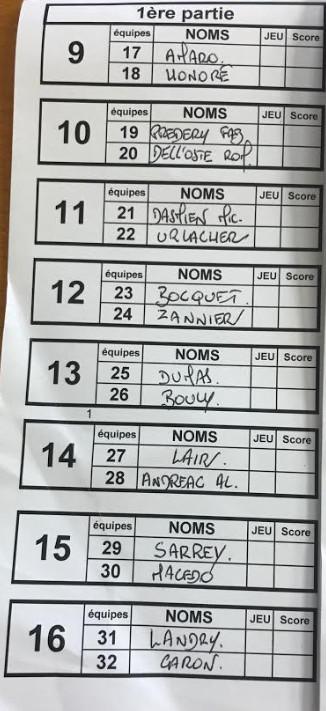 1ère partie
9 équipes NOMS JEU Score
17 AMARO.
18 HONORÉ
10 équipes NOMS JEU Score
19
20 DELL'OSTE ROP.
11 équipes NOMS JEU Score
21 Pic.
22 URLACHER
12 équipes NOMS JEU Score
23 BOCQUET.
24 ZANNIER
13 équipes NOMS JEU Score
25 DUPAS.
26 BOULY.
1
14 équipes NOMS JEU Score
27 LAIR.
28 ANDREAC AL.
15 équipes NOMS JEU Score
29 SARREY.
30 MACEDO
16 équipes NOMS JEU Score
31 LANDRY.
32 CARON.